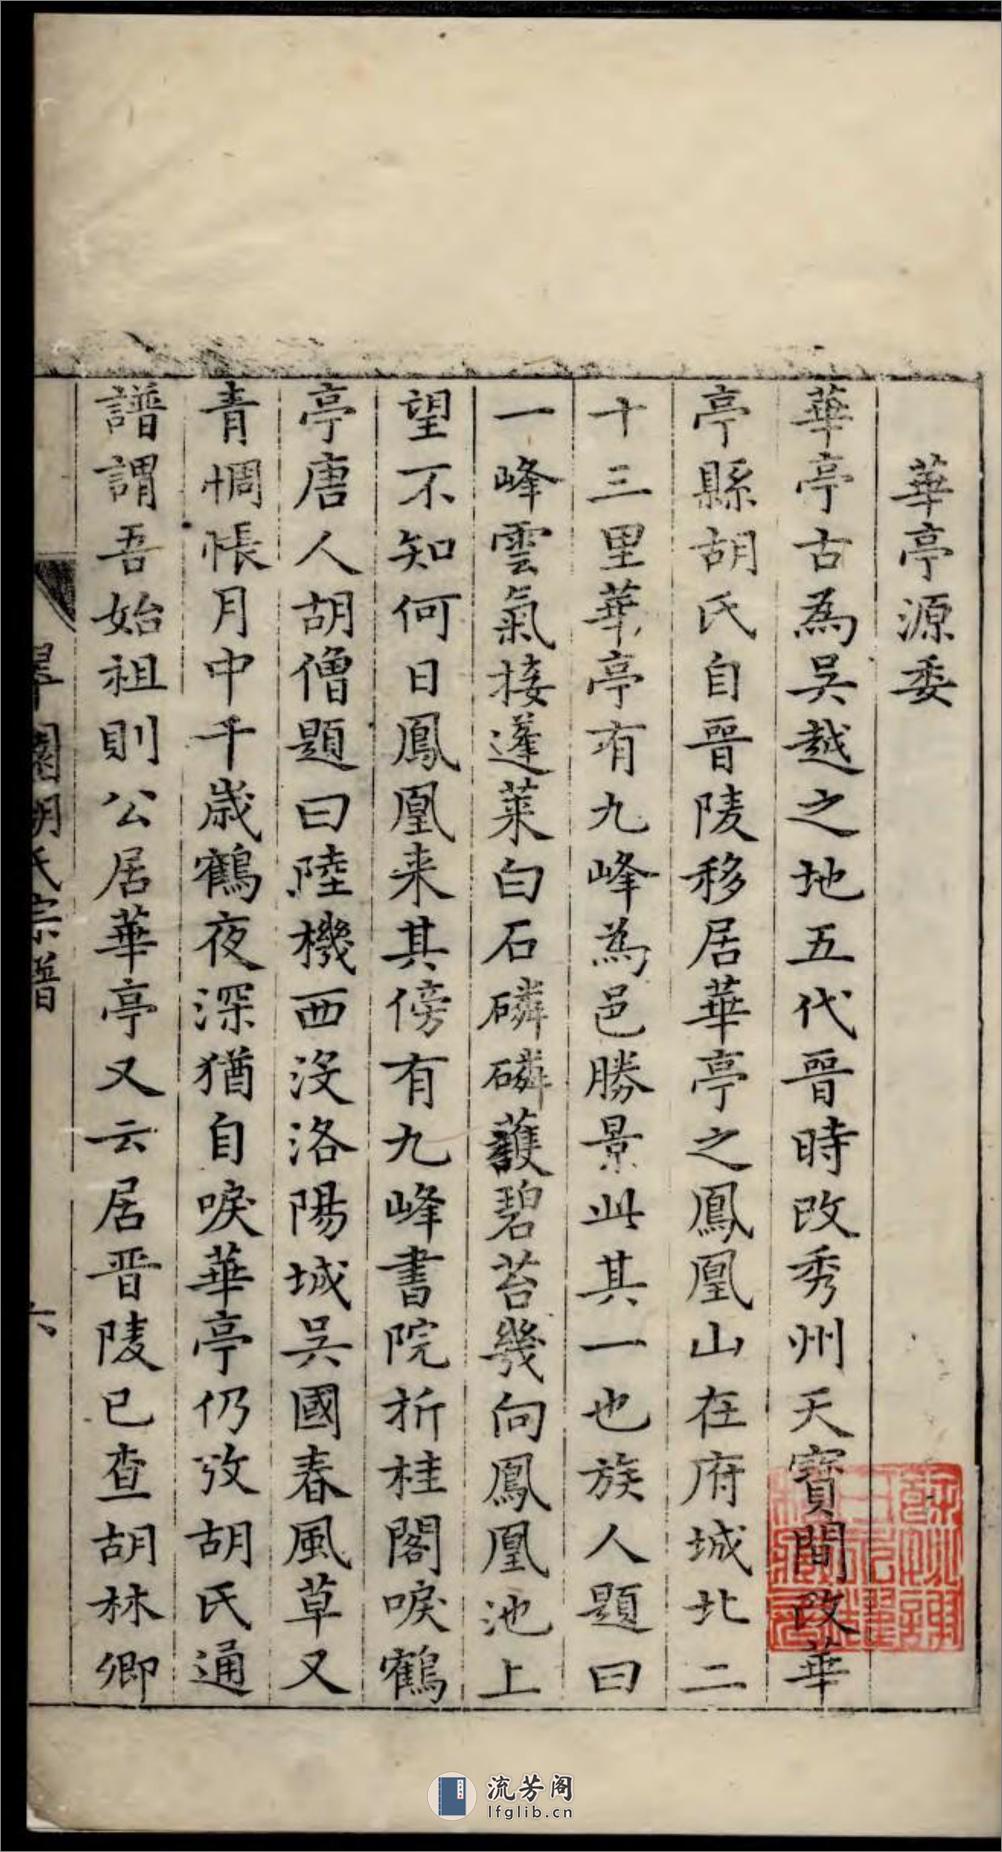 華亭源委
華亭古為吳越之地五代晉時改秀州天寶間改華
亭縣胡氏自晉陵移居華亭之鳳凰山在府城北二
十三里華亭有九峰為邑勝景此其一也族人題曰
一峰雲氣接蓬萊白石磷磷護碧苔幾向鳳凰池上
望不知何日鳳凰来其傍有九峰書院折桂閣唳鶴
亭唐人胡僧題曰陸機西沒洛陽城吳國春風草又
青惆悵月中千歲鶴夜深猶自唳華亭仍攷胡氏通
譜謂吾始祖則公居華亭又云居晋陵已查胡林卿
園胡氏宗譜
六
流芳阁
lfglib.cn